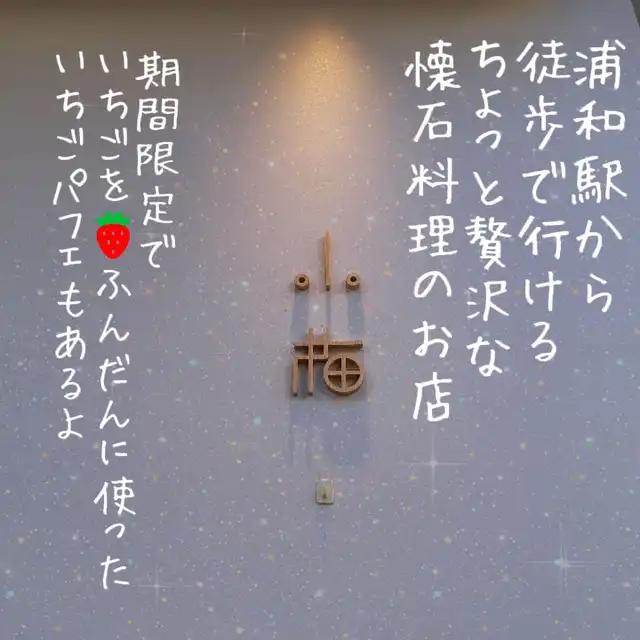 浦和駅から
徒歩で行ける
ちょっと贅沢な
懐石料理のお店
小
期間限定で
いちごを🍓ふんだんに使った
いちごパフェもあるよ